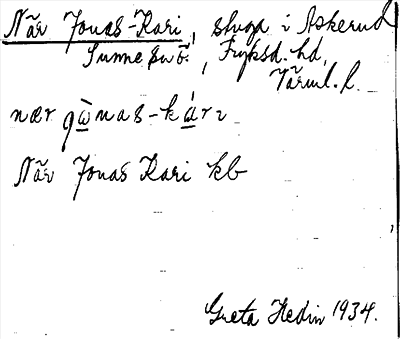 När Jonas-Kari, stuga i Askerud
Sunne sn ö., Fryksd. hd,
Värml. l.
nær jὼnas-kárı
När Jonas Kari kb
Greta Hedin 1934.